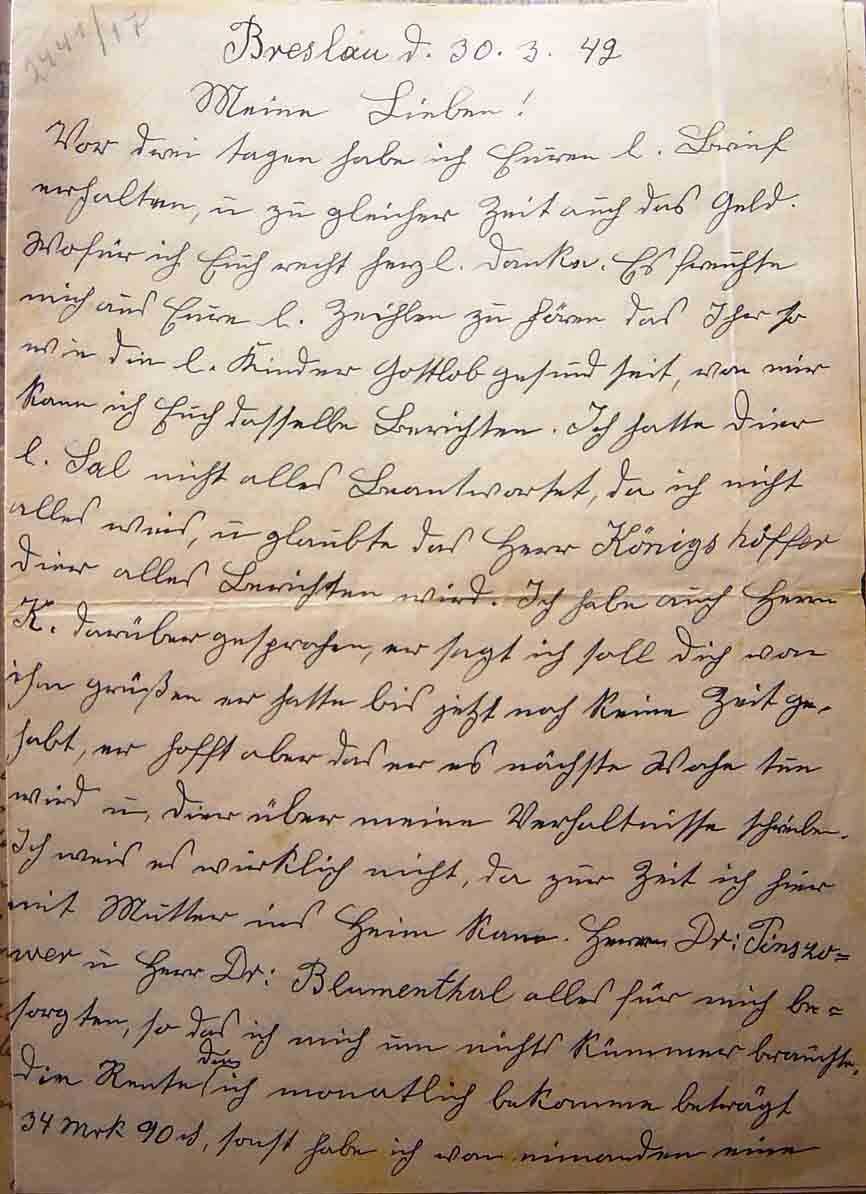 2441/17
Breslau d. 30. 3. 42
Meine Lieben!
Vor drei tagen habe ich Euren l. Brief
erhalten, u zu gleicher Zeit auch das Geld.
Wofür ich Euch recht herzl. danke. Es freuhte
mich aus Eure l. Zeihlen zu hören das Iher so
wie die l. Kinder Gottlob gesund seit, von mir
kann ich Euch dasselbe Berichten. Ich hatte Dier
l. Sal nicht alles Beantwortet, da ich nicht
alles weis, u glaubte das Herr Königshöffer
Dier alles Berichten wird. Ich habe auch Herrn
K. darüber gesprochen, er sagt ich soll Dich von
ihm grüßen er hatte bis jetzt noch keine Zeit ge-
habt, er hofft aber das er es nächste Woche tun
wird u, Dier über meine Verhaltnisse schreiben.
Ich weis es wirklich nicht, da zur Zeit ich hier
mit Mutter ins Heim kam. Herr Dr: Pinszo=
wer u Herr Dr: Blumenthal alles für mich be=
sorgten, so das ich mich um nichts kümmer brauchte,
die Rente die ich monatlich bekomme beträgt
34 Mrk 90 d, sonst habe ich von niemanden eine